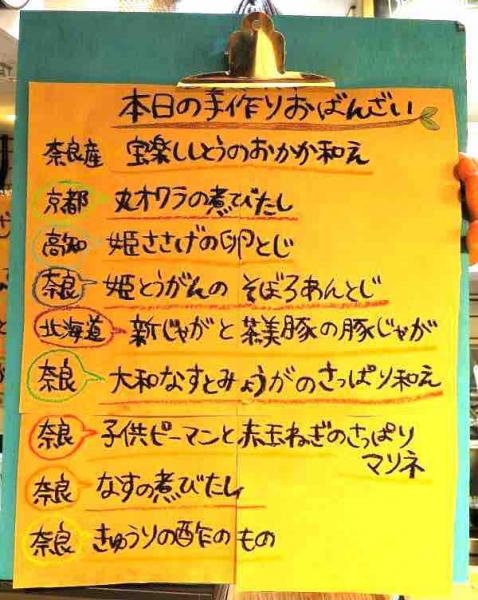 本日の手作りおばんざい
奈良産 宝楽ししとうのおかか和え
京都 丸オクラの煮びたし
高知 姫ささげの卵とじ
奈良 姫とうがんのそぼろあんとじ
北海道 新じゃがと茶美豚の豚じゃが
奈良 大和なすとみょうがのさっぱり和え
奈良 子供ピーマンと赤玉ねぎのさっぱり
マリネ
奈良 なすの煮びたし
奈良 きゅうりの酢のもの